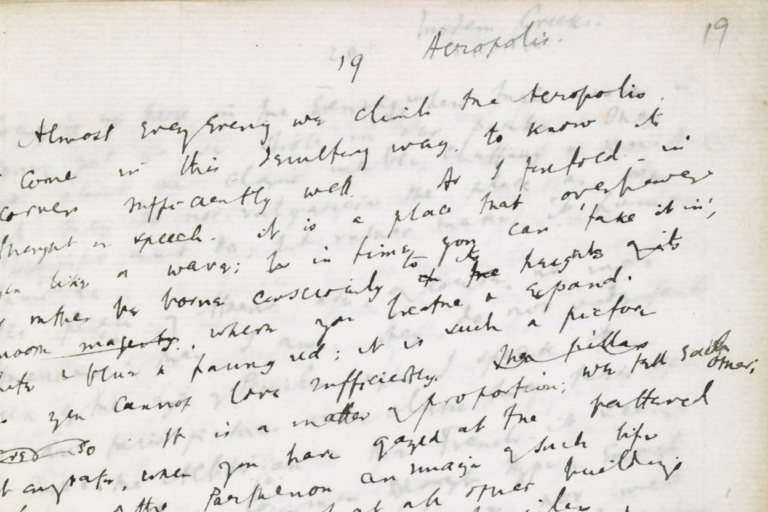 19
19 Acropolis.
Almost every evening we climb the Acropolis.
come in this desultory way to know it
corners sufficiently well. As I foretold - in
thought or speech - it is a place that overpowers
like a wave; but in time you can 'take it in';
rather be borne consciously to the heights of its
majesty, where you breathe & expand.
blue & flaming red; it is such a picture
you cannot love sufficiently. The pillars
so it is a matter of proportion; we tell each other;
when you have gazed at the battered
the Parthenon an image of such life
at all other buildings